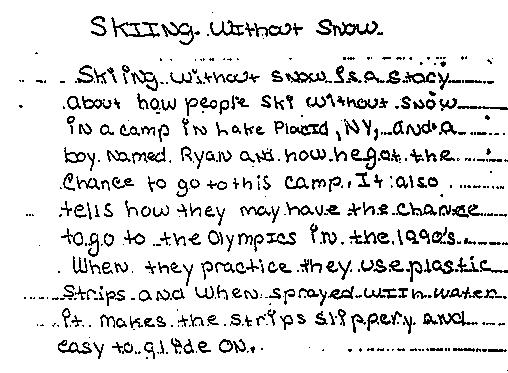 Skiing Without Snow
Skiing without snow is a story
about how people ski without snow
in a camp in Lake Placid, NY, and a
boy named Ryan and how he got the
chance to go to this camp. It also
tells how they may have the chance
to go to the Olympics in the 1990's.
When they practice they use plastic
strips and when sprayed with water
it makes the strips slippery and
easy to glide on.